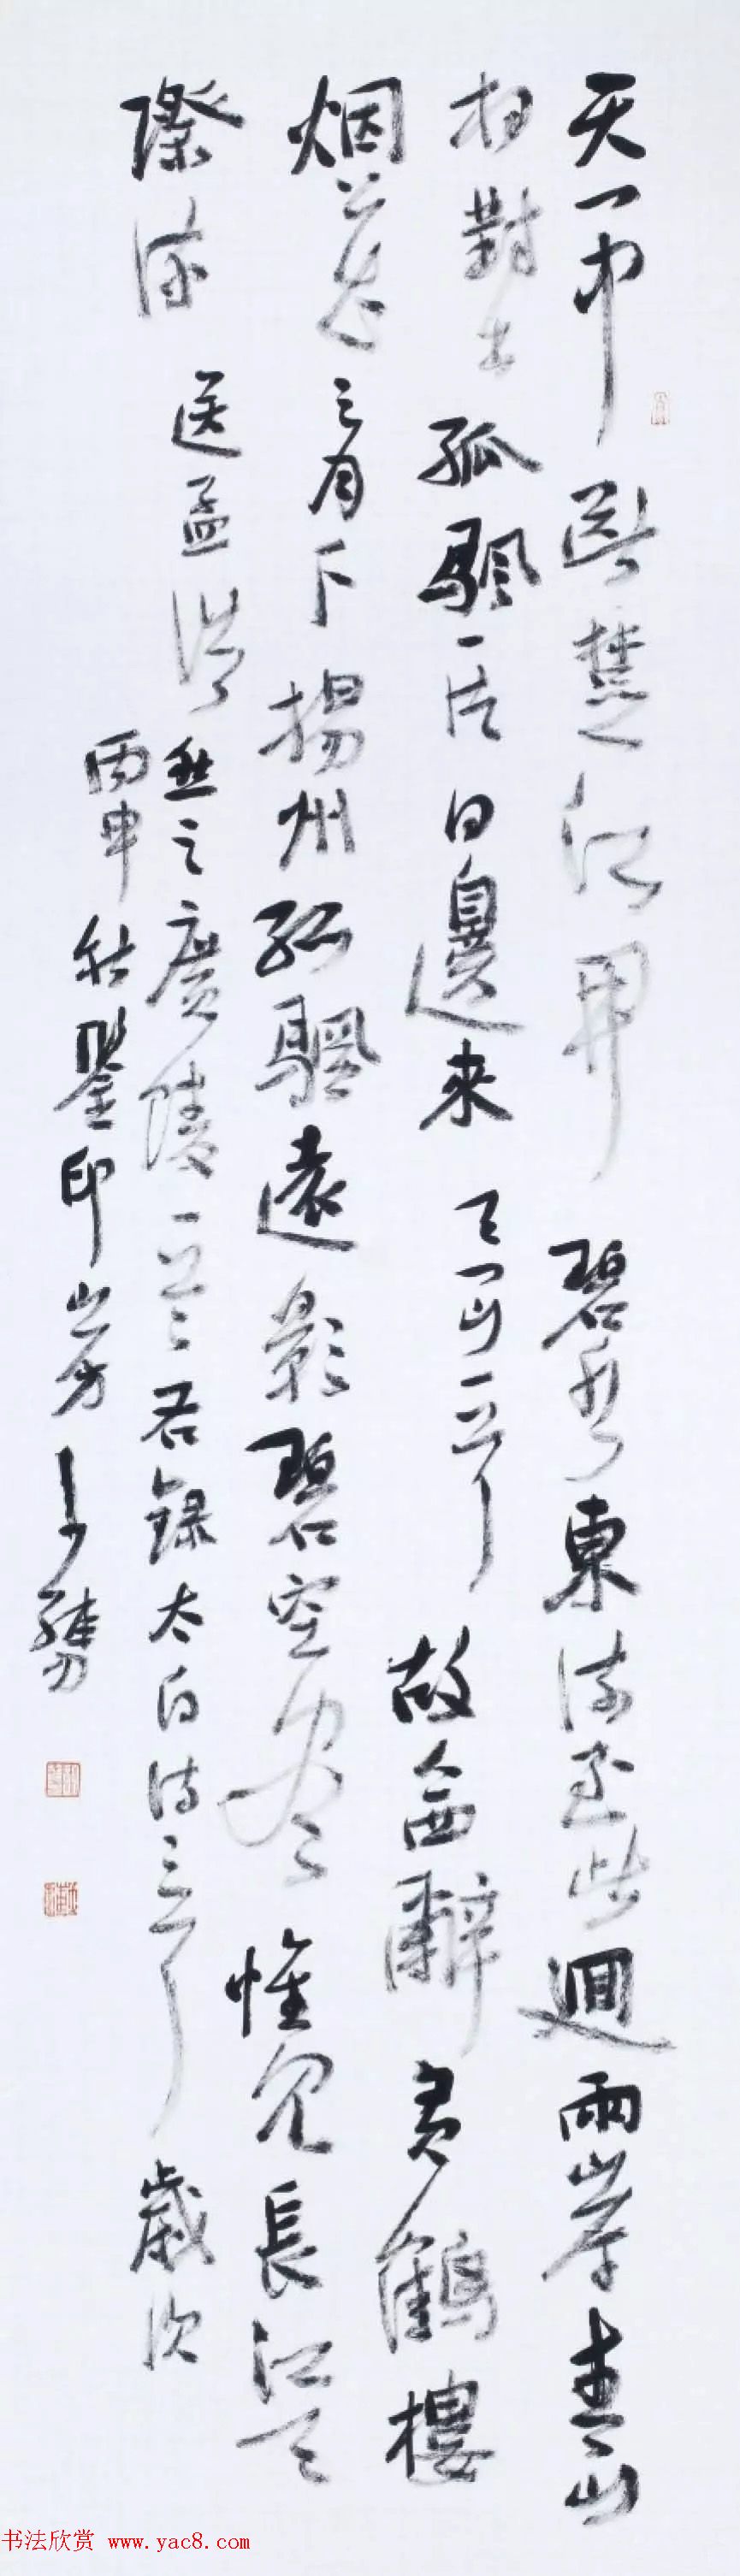 天门中断楚江开碧水東流至此迴兩岸青山
相對出孤颿一片日邊来天门山一首故人西辭黄鹤樓
烟花三月下揚州孤颿遠影碧空盡惟见長江天
際流送孟浩
然之廣陵一首右録太白诗二首歲次
丙申秋鋻印山房
书法欣赏 www.yac8.com